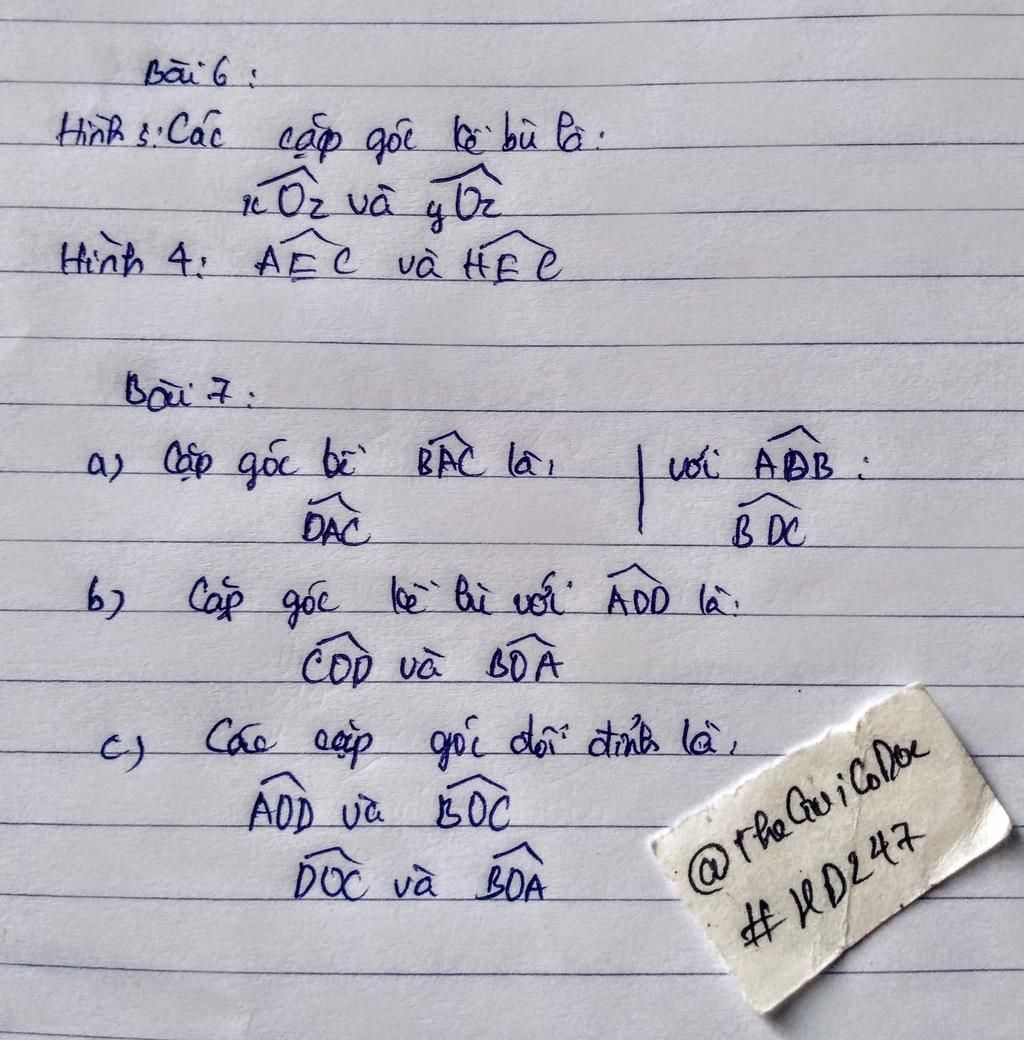 Bài 6:
Hình 3: Các cặp góc kề bù là:
xOz và yOz
Hình 4: AEC và HEC
Bài 7:
a) Cặp góc kề BAC là, | với ADB:
DAC BDC
b) Cặp góc kề bù với AOD là:
COD và BOA
c) Các cặp góc đối đỉnh là,
AOD và BOC
DOC và BOA
@TheGioiCoDoc
#HD247